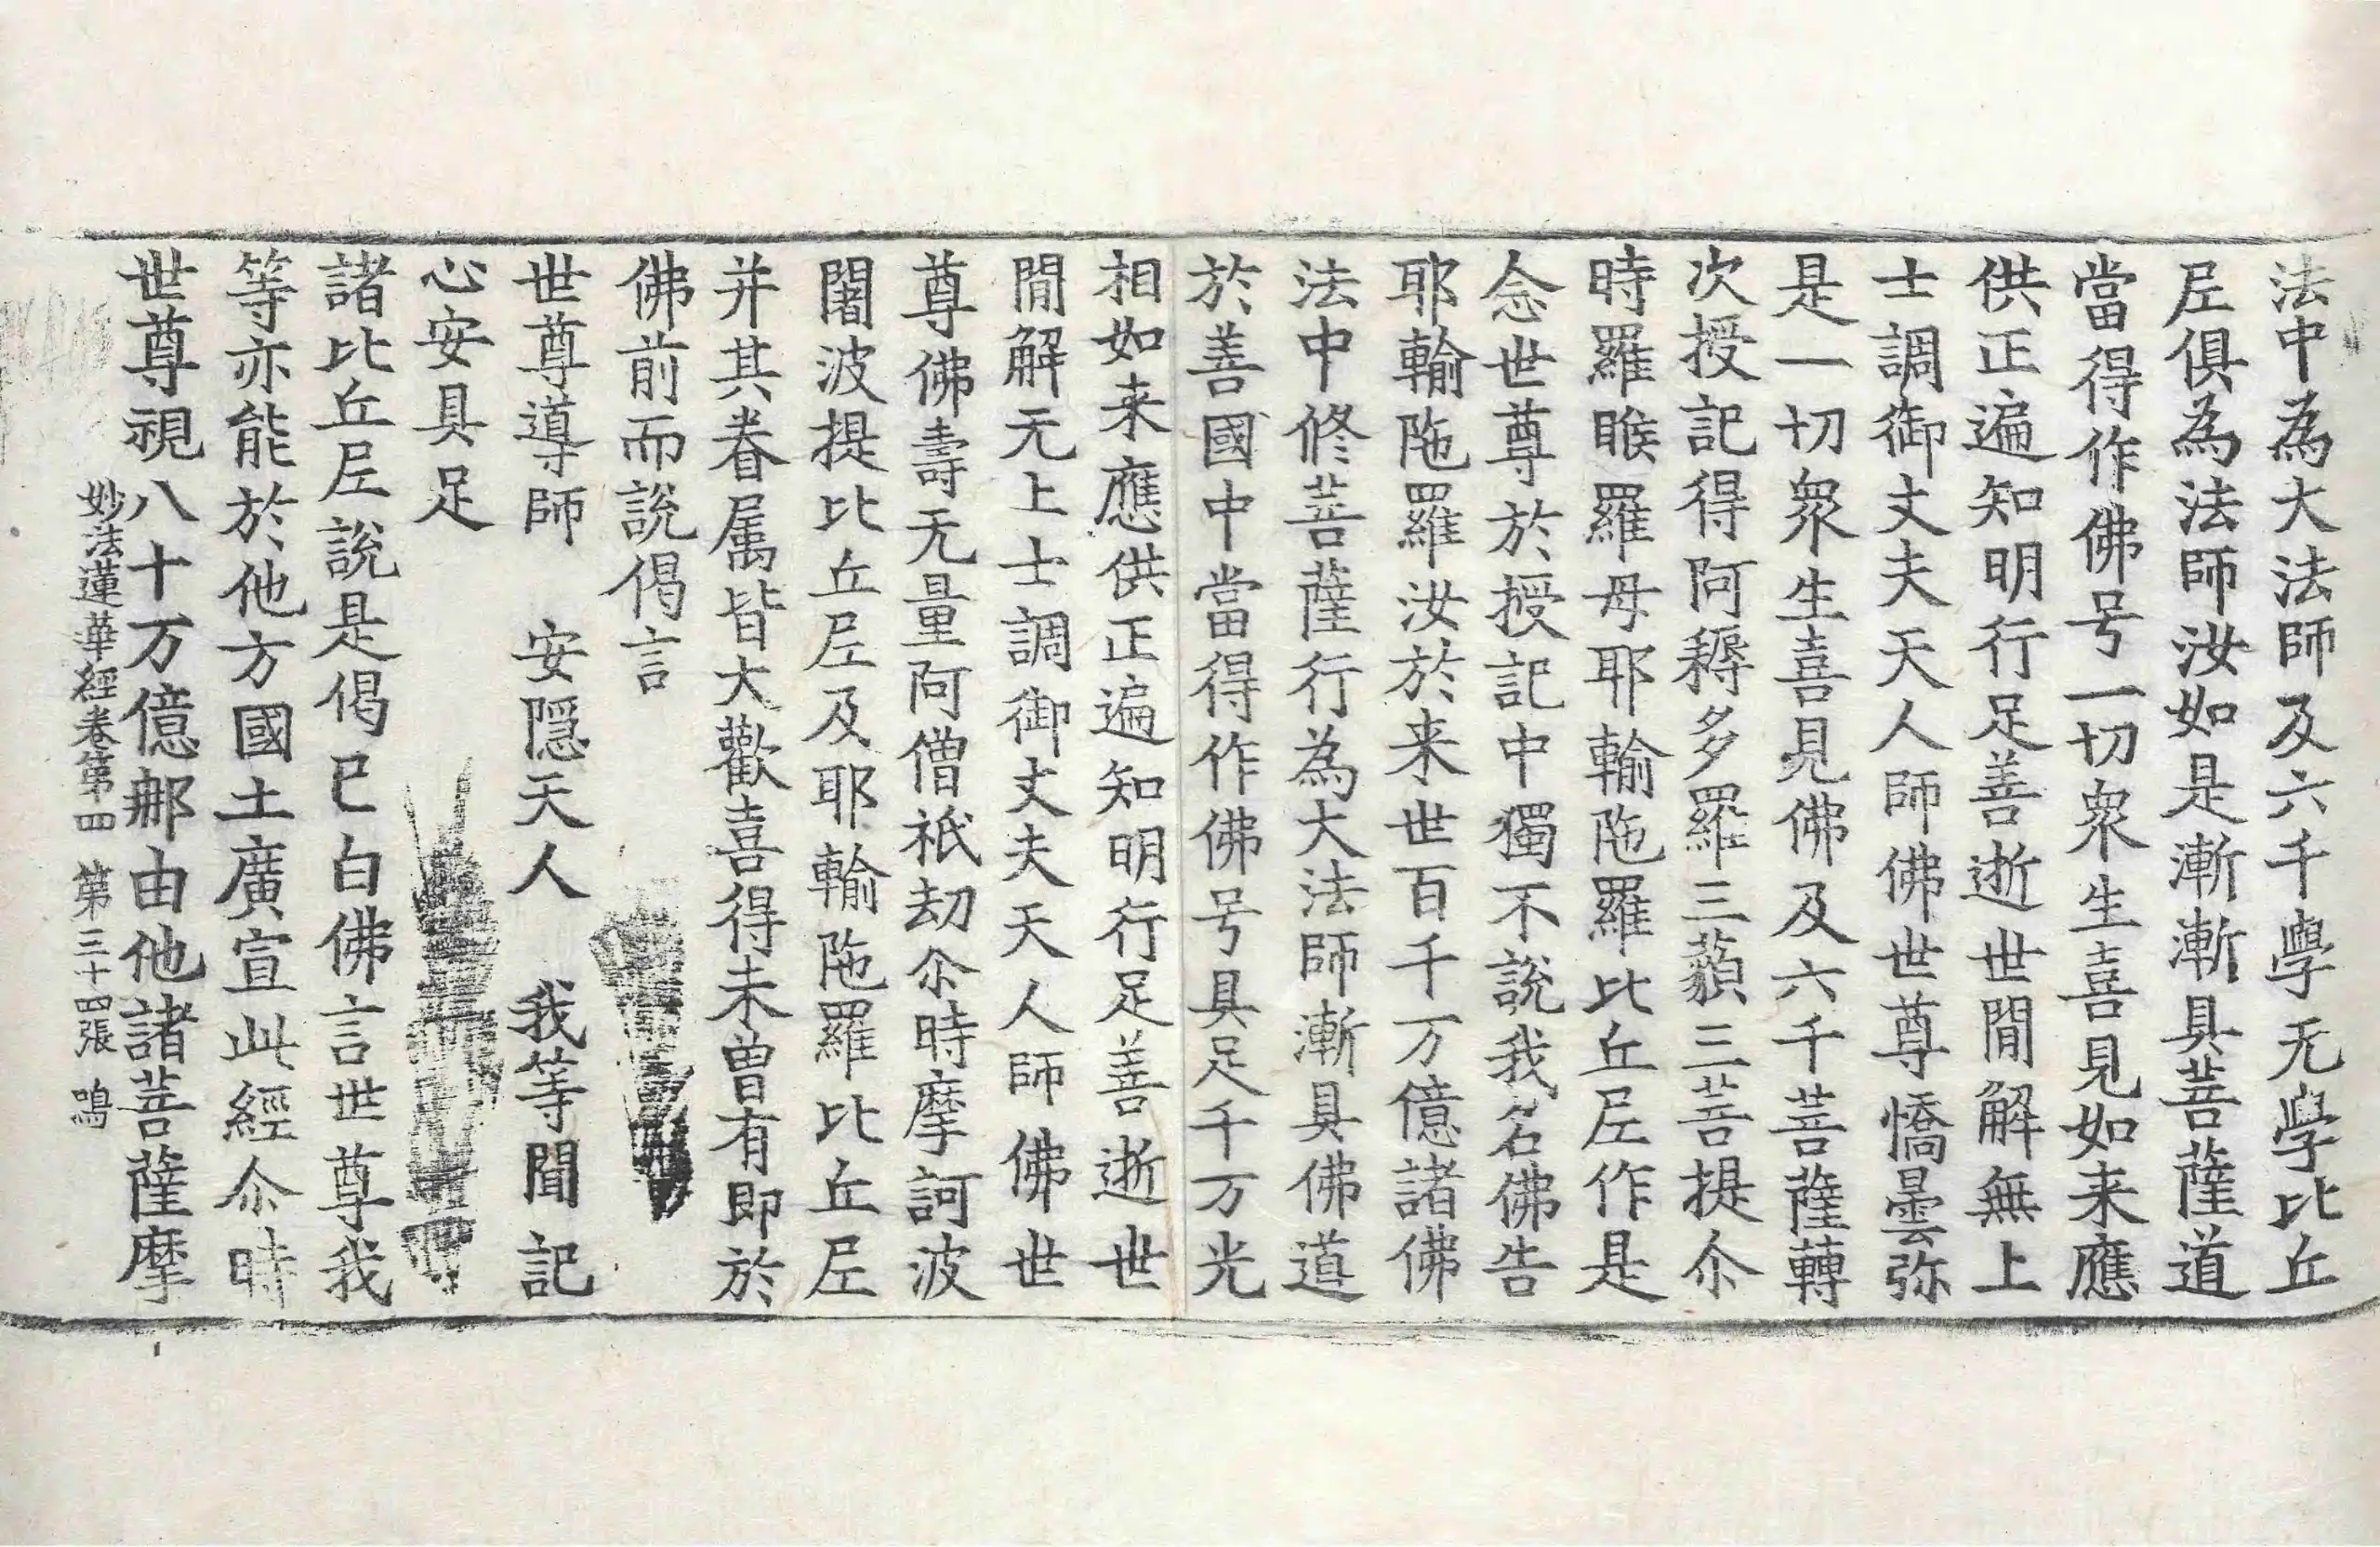 法中為大法師及六千學无學比丘
𡰱俱為法師汝如是漸漸具菩薩道
當得作佛号一切衆生喜見如来應
供正遍知明行足善逝世間解無上
士調御丈夫天人師佛世尊憍曇弥
是一切衆生喜見佛及六千菩薩轉
次授記得阿耨多羅三藐三菩提尒
時羅睺羅母耶輸陁羅比丘𡰱作是
念世尊於授記中獨不說我名佛告
耶輸陁羅汝於来世百千万億諸佛
法中修菩薩行為大法師漸具佛道
於善國中當得作佛号具足千万光
相如来應供正遍知明行足善逝世
間解无上士調御丈夫天人師佛世
尊佛壽无量阿僧祇劫尒時摩訶波
闍波提比丘𡰱及耶輸陁羅比丘𡰱
并其眷属皆大歡喜得未曾有即於
佛前而說偈言
世尊導師　安隱天人　我等聞記
心安具足
諸比丘𡰱說是偈已白佛言世尊我
等亦能於他方國土廣宣此經尒時
世尊視八十万億那由他諸菩薩摩
妙法蓮華經卷第四　第三十四張　鳴